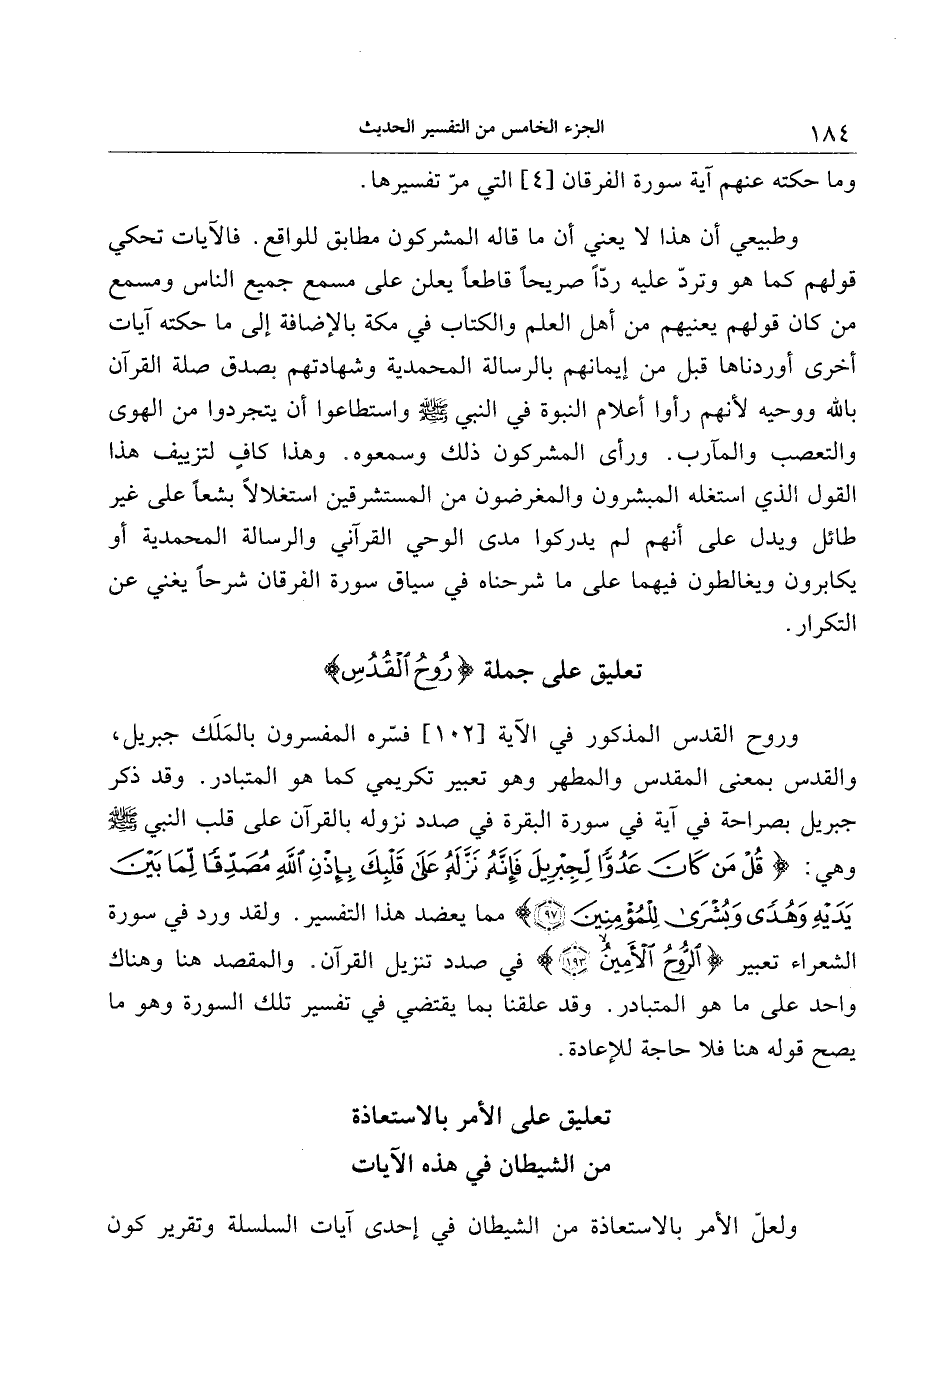 ١٨٤
الجزء الخامس من التفسير الحديث
وما حكته عنهم آية سورة الفرقان [٤] التي مرّ تفسيرها.
وطبيعي أن هذا لا يعني أن ما قاله المشركون مطابق للواقع. فالآيات تحكي
قولهم كما هو وتردّ عليه ردّاً صريحاً قاطعاً يعلن على مسمع جميع الناس ومسمع
من كان قولهم يعنيهم من أهل العلم والكتاب في مكة بالإضافة إلى ما حكته آيات
أخرى أوردناها قبل من إيمانهم بالرسالة المحمدية وشهادتهم بصدق صلة القرآن
بالله ووحيه لأنهم رأوا أعلام النبوة في النبي ﷺ واستطاعوا أن يتجردوا من الهوى
والتعصب والمآرب. ورأى المشركون ذلك وسمعوه. وهذا كافٍ لتزييف هذا
القول الذي استغله المبشرون والمغرضون من المستشرقين استغلالاً بشعاً على غير
طائل ويدل على أنهم لم يدركوا مدى الوحي القرآني والرسالة المحمدية أو
يكابرون ويغالطون فيهما على ما شرحناه في سياق سورة الفرقان شرحاً يغني عن
التكرار.
تعليق على جملة ﴿رُوحُ ٱلْقُدُسِ﴾
وروح القدس المذكور في الآية [١٠٢] فسّره المفسرون بالمَلَك جبريل،
والقدس بمعنى المقدس والمطهر وهو تعبير تكريمي كما هو المتبادر. وقد ذكر
جبريل بصراحة في آية في سورة البقرة في صدد نزوله بالقرآن على قلب النبي ﷺ
وهي: ﴿قُلْ مَن كَانَ عَدُوًّا لِّجِبْرِيلَ فَإِنَّهُۥ نَزَّلَهُۥ عَلَىٰ قَلْبِكَ بِإِذْنِ ٱللَّهِ مُصَدِّقًا لِّمَا بَيْنَ
يَدَيْهِ وَهُدًى وَبُشْرَىٰ لِلْمُؤْمِنِينَ ٩٧﴾ مما يعضد هذا التفسير. ولقد ورد في سورة
الشعراء تعبير ﴿ٱلرُّوحُ ٱلْأَمِينُ ١٩٣﴾ في صدد تنزيل القرآن. والمقصد هنا وهناك
واحد على ما هو المتبادر. وقد علقنا بما يقتضي في تفسير تلك السورة وهو ما
يصح قوله هنا فلا حاجة للإعادة.
تعليق على الأمر بالاستعاذة
من الشيطان في هذه الآيات
ولعلّ الأمر بالاستعاذة من الشيطان في إحدى آيات السلسلة وتقرير كون